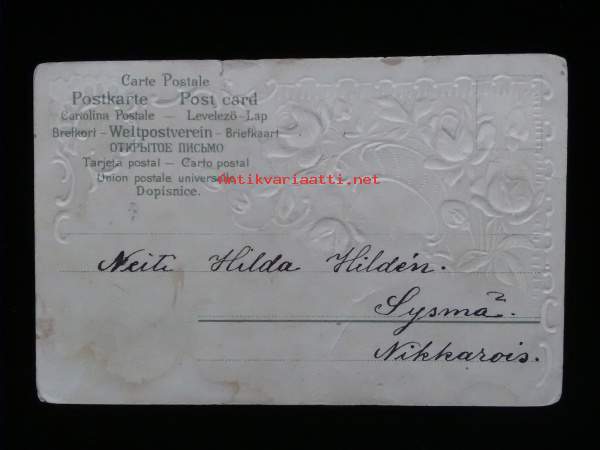 Carte Postale
Postkarte — Post card
Carolina Postale — Levelezö-Lap
Brefkort – Weltpostverein – Briefkaart
ОТКРЫТОЕ ПИСЬМО
Tarjeta postal — Carto postal
Union postale universelle
antikvariaatti.net
Dopisnice.
Neiti Hilda Hildén.
Sysmä.
Nikkarois.